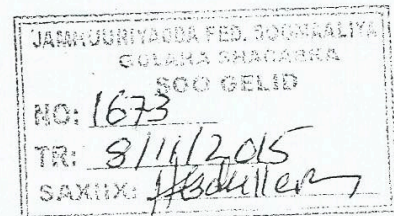 JAMHUURIYADDA FED. SOOMAALIYA
GOLAHA SHACABKA
SOO GELID
NO: 1673
TR: 8/11/2015
SAXIIX: